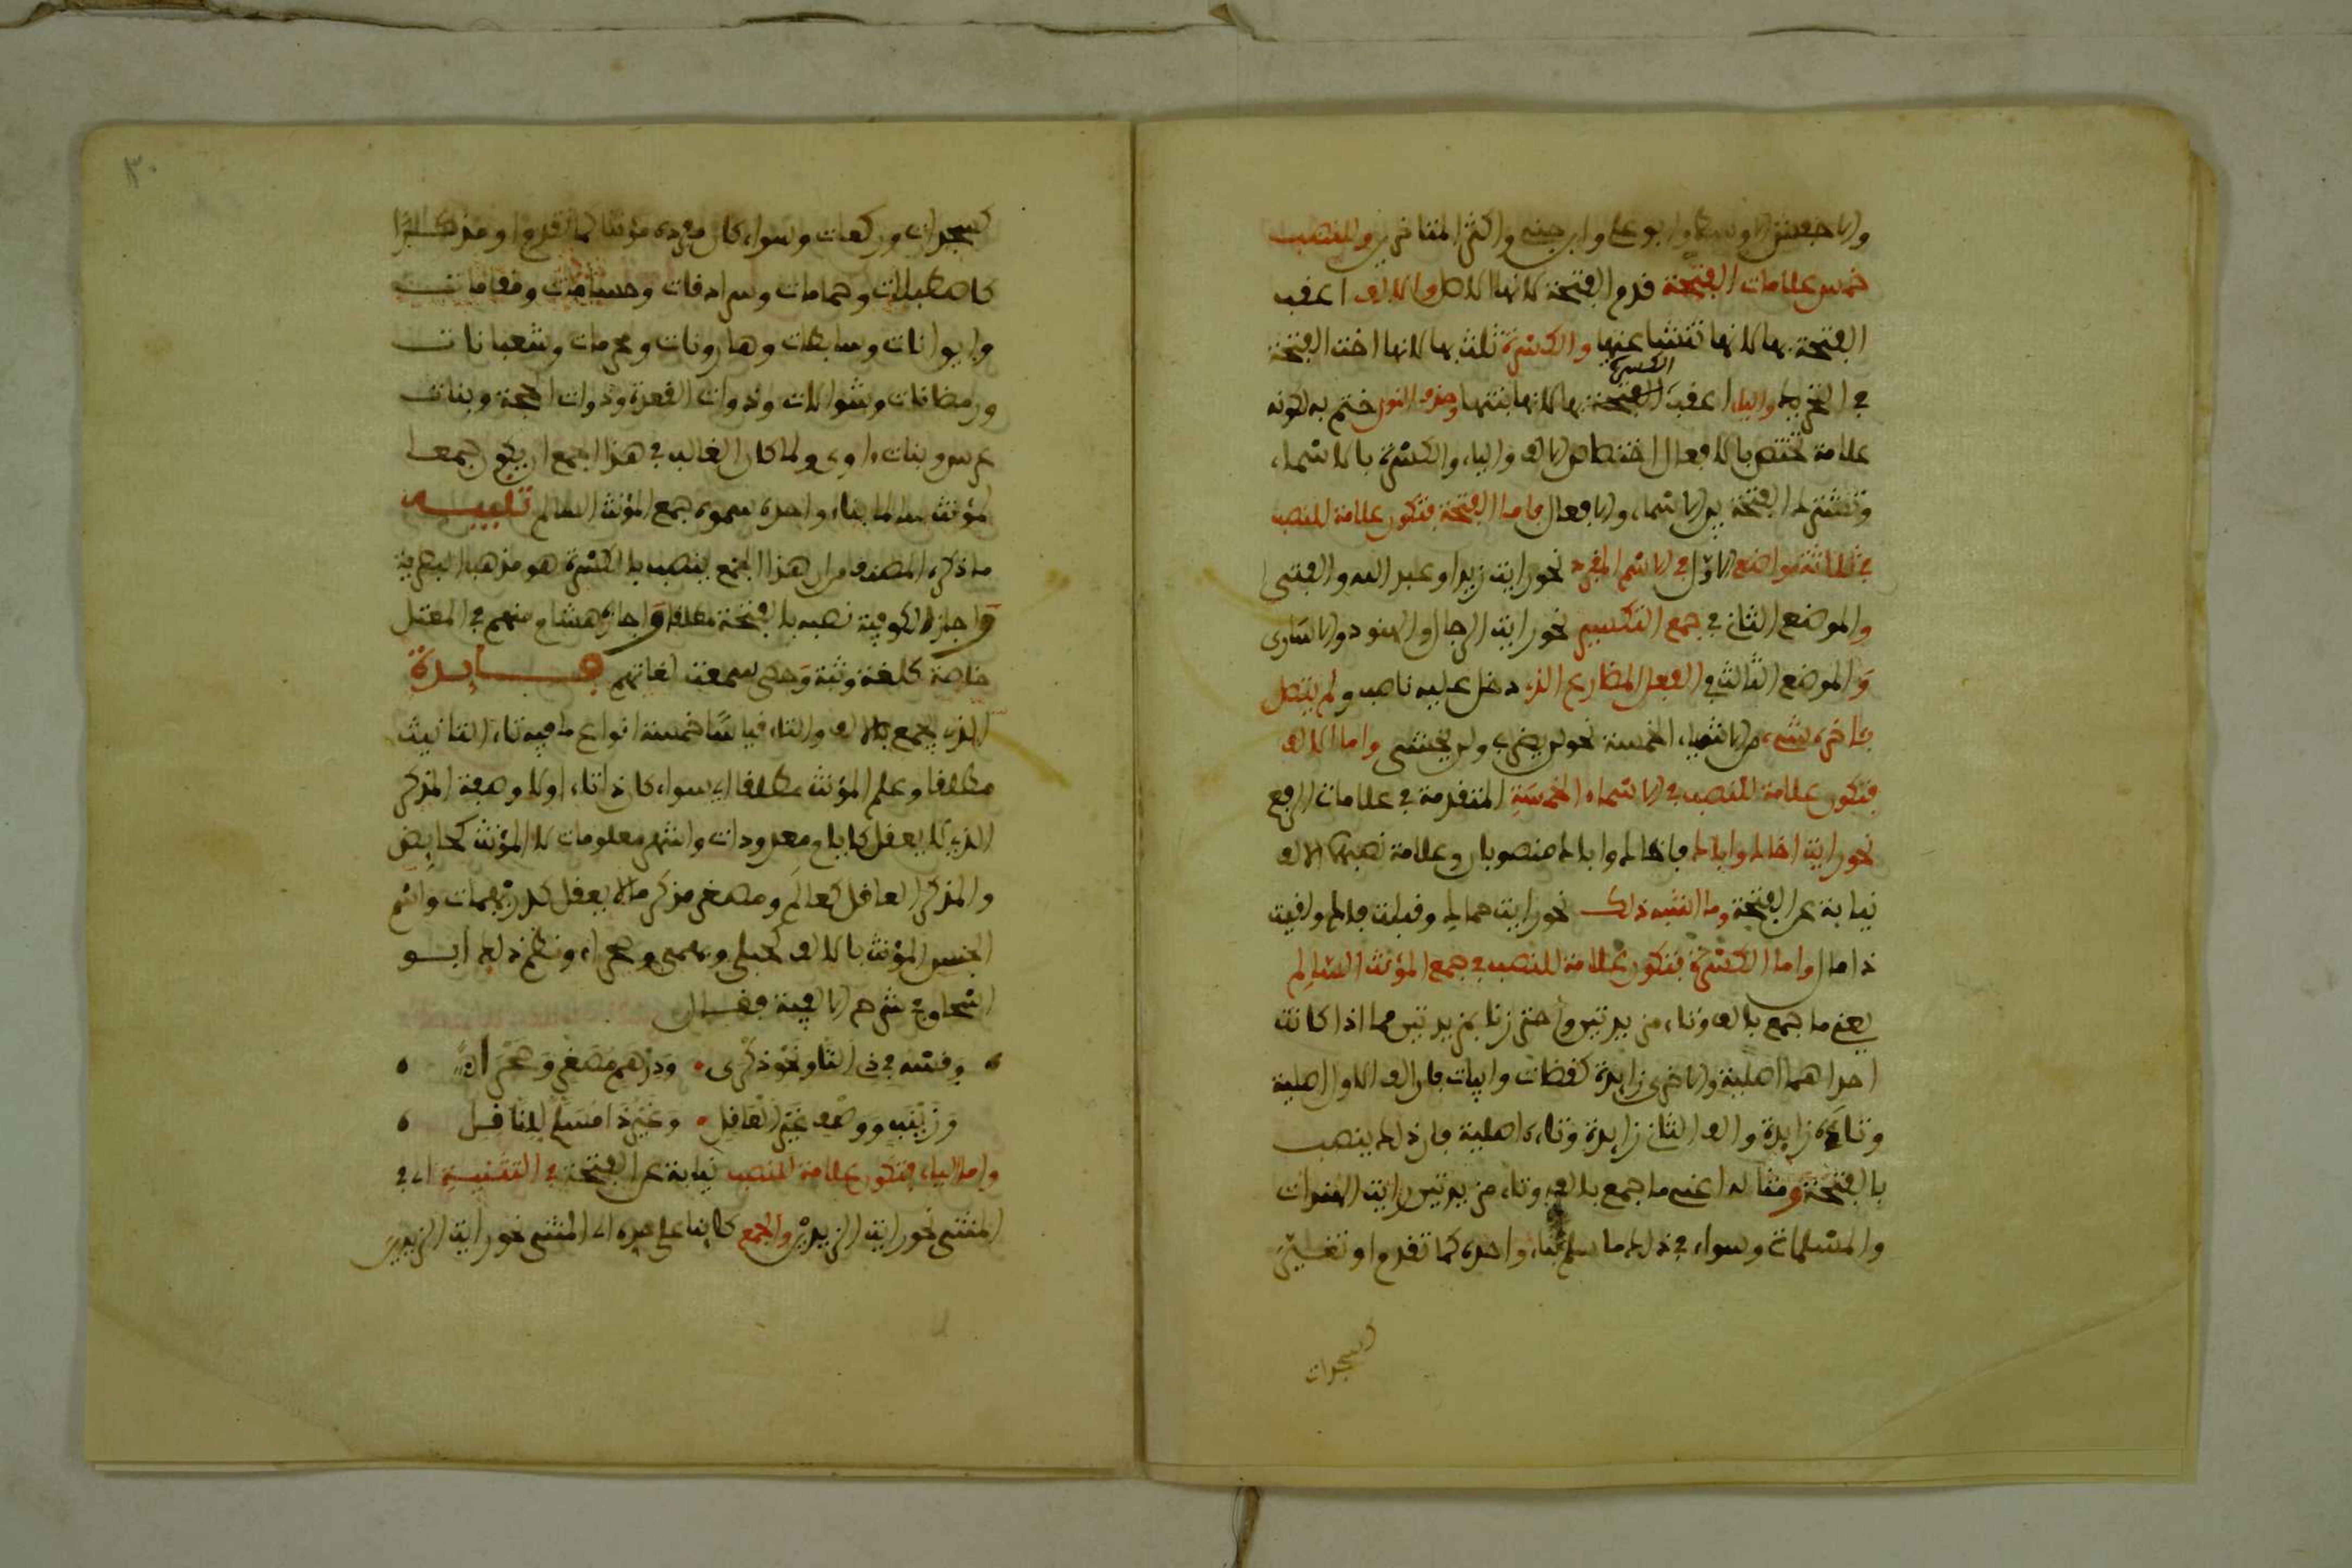 والاخفش الاوسط وابو علي وابن جني واكثر المتاخرين وللنصب
خمس علامات الفتحة قدم الفتحة لانها الاصل والالف اعقب
الفتحة بها لانها تنشا عنها والكسرة ثلث بها لانها اخت الفتحة
في التحريك والياء اعقب الكسرة بها لانها بنتها وحذف النون ختم به لكونه
علامة تختص بالافعال اختصاص الالف والياء والكسرة بالاسماء
وتشترك الفتحة بين الاسماء والافعال فاما الفتحة فتكون علامة للنصب
في ثلاثة مواضع الاول في الاسم المفرد نحو رايت زيدا وعبد الله والفتى
والموضع الثاني في جمع التكسير نحو رايت الرجال والهنود والاسارى
والموضع الثالث في الفعل المضارع الذي دخل عليه ناصب ولم يتصل
باخره شيء من الاشياء الخمسة نحو لن يضرب ولن يخشى واما الالف
فتكون علامة للنصب في الاسماء الخمسة المتقدمة في علامات الرفع
نحو رايت اخاك واباك فاخاك واباك منصوبان وعلامة نصبهما الالف
نيابة عن الفتحة وما اشبه ذلك نحو رايت حماك وقبلت فاك ولقيت
ذا مال واما الكسرة فتكون علامة للنصب في جمع المؤنث السالم
يعني ما جمع بالف وتاء مزيدتين واحترزنا بمزيدتين مما اذا كانت
احداهما اصلية والاخرى زايدة كقضات وابيات فان الف الاول اصلية
وتاءه زايدة والف الثاني زايدة وتاءه اصلية فان ذلك ينصب
بالفتحة ومثاله اعني ما جمع بالف وتاء مزيدتين رايت الهندات
والمسلمات وسواء في ذلك ما سلم بناء واحده كما تقدم او تغير
كسجدات
٣٠
كسجدات وركعات وسواء كان مفرده مؤنثا كما تقدم او مذكرا
كاصطبلات وحمامات وسرادقات وحسامات ومقامات
وايوانات وسابطات وهارونات ومحرمات وشعبانات
ورمضانات وشوالات وذوات القعدة وذوات الحجة وبنات
عرس وبنات اوى ولما كان الغالب في هذا الجمع ان يكون جمعا
لمؤنث سالما بناء واحده سموه جمع المؤنث السالم تنبيه
ما ذكره المصنف من ان هذا الجمع ينصب بالكسرة هو مذهب البصرية
واجاز الكوفية نصبه بالفتحة مطلقا واجازه هشام منهم في المعتل
خاصة كلغة وثبة وحكى سمعت لغاتهم فايدة
الذي يجمع بالالف والتاء قياسا خمسة انواع ما فيه تاء التانيث
مطلقا وعلم المؤنث مطلقا اي سواء كان ذا تاء اولا وصفة المذكر
الذي لا يعقل كايام معدودات واشهر معلومات لا المؤنث كحايض
والمذكر العاقل كعالم ومصغر مذكر ما لا يعقل كدريهمات واسم
الجنس المؤنث بالالف كحبلى وبهمى وصحراء ونظم ذلك ابو
اسحاق في شرح الالفية فقال
وقسه في ذي التا ونحو ذكرى • ودرهم مصغر وصحرا
وزينب ووصف غير العاقل • وغير ذا مسلم للناقل
واما الياء فتكون علامة للنصب نيابة عن الفتحة في التثنية اي في
المثنى نحو رايت الزيدين والجمع كاينا على حده اي المثنى نحو رايت الزيدين